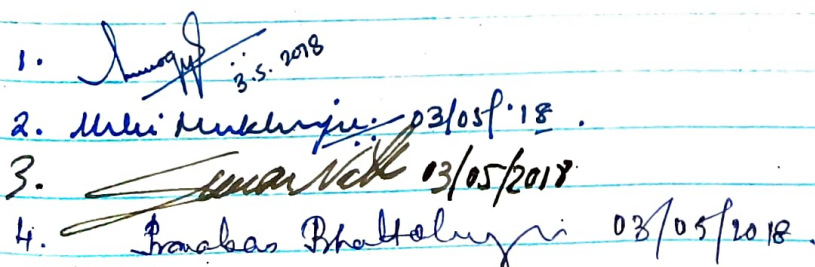 1. 3.5.2018
2. Mukherjee. 03/05/'18.
3. Suman Nath 03/05/2018
4. Pranabas Bhattacharyya 03/05/2018.